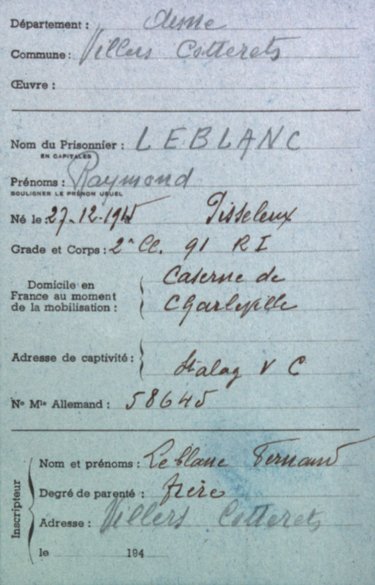 Département : Aisne
Commune : Villers Cotterets
Œuvre :
Nom du Prisonnier : LEBLANC
EN CAPITALES
Prénoms : Raymond
SOULIGNER LE PRÉNOM USUEL
Né le 27-12-1915 Pisseleux
Grade et Corps : 2e Cl. 91 R I
Domicile en
France au moment
de la mobilisation :
Caserne de
Charleville
Adresse de captivité :
Stalag V C
No Mle Allemand : 58645
Inscripteur
Nom et prénoms : Leblanc Fernand
Degré de parenté : frère
Adresse : Villers Cotterets
le 194